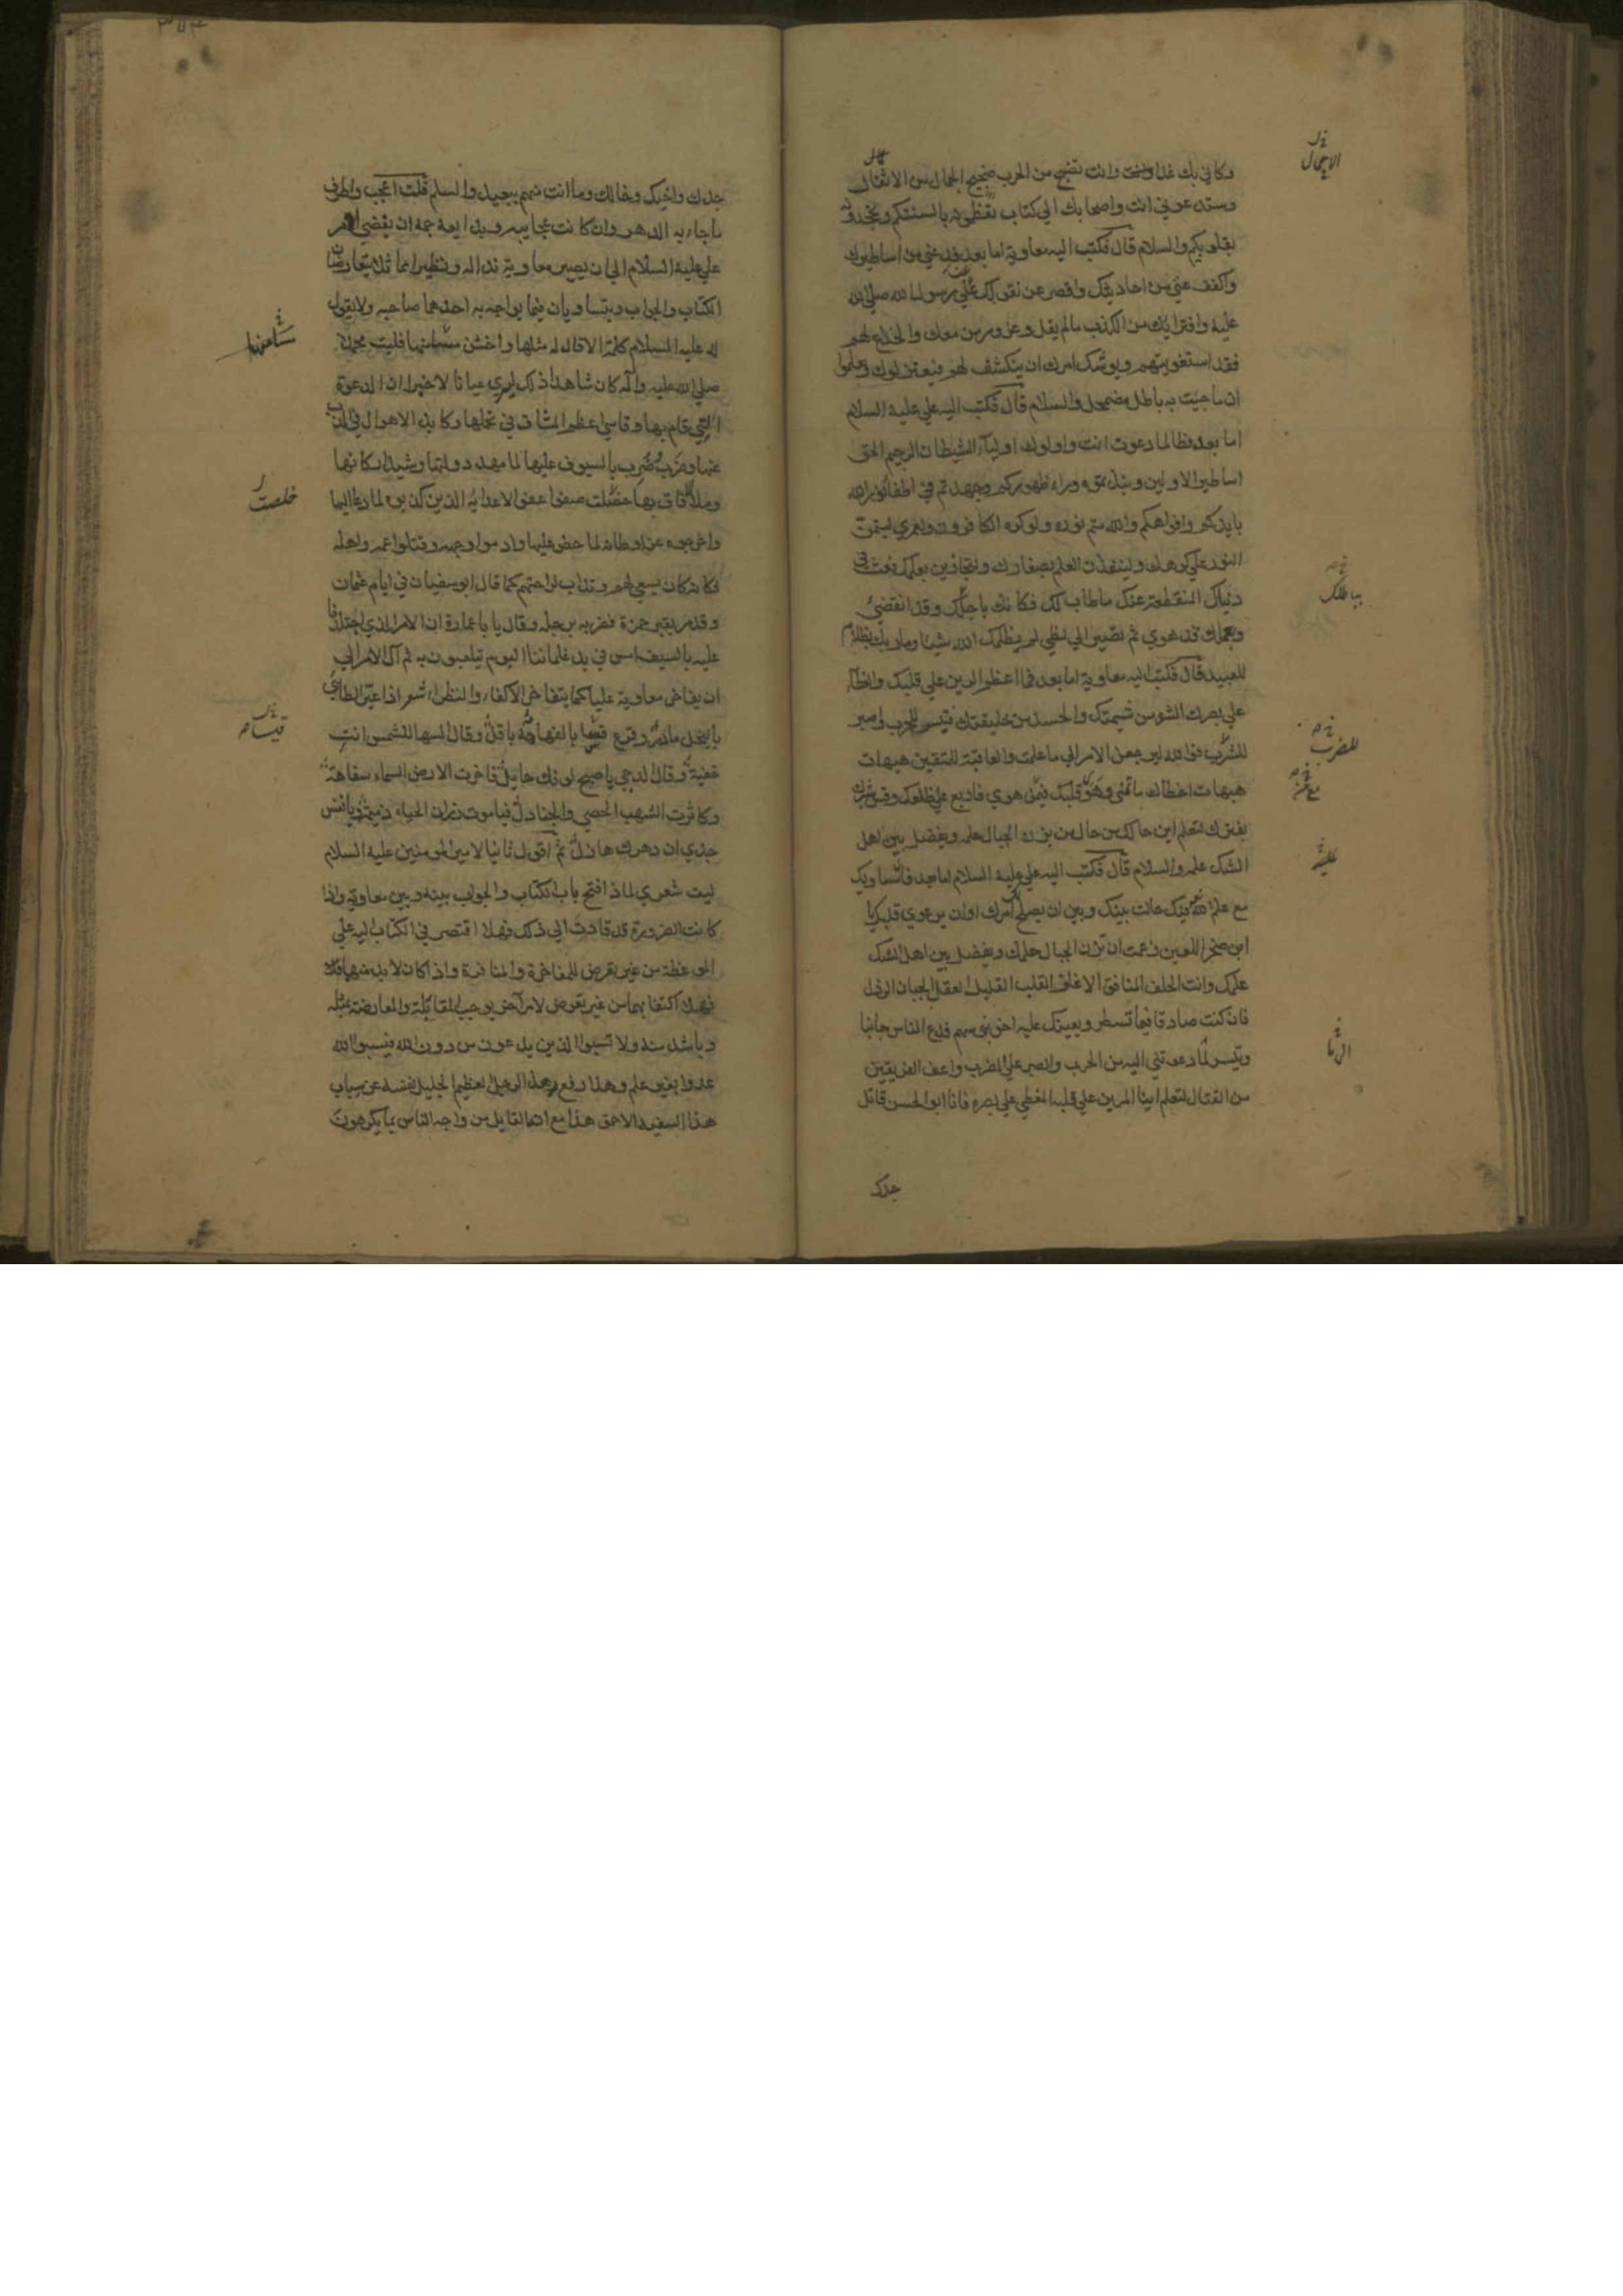 وكاني بك غدا وانت تضج من الحرب ضجيج الجمال من الاثقال
وستدعوني انت واصحابك الي كتاب تعظمونه بالسنتكم وتجحدونه
بقلوبكم والسلام قال فكتب اليه معاوية اما بعد فدعني من اساطيرك
واكفف عني من احاديثك واقصر عن تقولك علي رسول الله صلي الله
عليه وافترائك من الكذب ما لم يقل وغرور من معك والخداع لهم
فقد استغويتهم ويوشك امرك ان ينكشف لهم فيعتزلوك ويعلموا
ان ما جئت به باطل مضمحل والسلام قال فكتب اليه علي عليه السلام
اما بعد فطالما دعوت انت واولوك اولياء الشيطان الرجيم الحق
اساطير الاولين ونبذتموه وراء ظهوركم وجهدتم في اطفاء نور الله
بايديكم وافواهكم والله متم نوره ولو كره الكافرون ولعمري ليتمن
النور علي كرهك ولينفذن العلم بصغارك ولتجازين بعملك فعث في
دنياك المنقطعة عنك ما طاب لك فكانك باجلك وقد انقضي
وبعملك قد هوي ثم تصير الي لظي لم يظلمك الله شيئا وما ربك بظلام
للعبيد قال فكتب اليه معاوية اما بعد فما اعظم الرين علي قلبك والغطاء
علي بصرك الشره من شيمتك والحسد من خليقتك فتيسر للحرب واصبر
للضرب فوالله ليرجعن الامر الي ما علمت والعاقبة للمتقين هيهات
هيهات اخطاك ما تمني وهوي قلبك فيمن هوي فاربع علي ظلعك وقس شبرك
بفترك لتعلم اين حالك من حال من يزن الجبال حلمه ويفصل بين اهل
الشك علمه والسلام قال فكتب اليه علي عليه السلام اما بعد فان مساويك
مع علم الله فيك حالت بينك وبين ان يصلح امرك او ان يرعوي قلبك يا
ابن صخر اللعين زعمت ان تزن الجبال حلمك ويفصل بين اهل الشك
علمك وانت الجلف المنافق الاغلف القلب القليل العقل الجبان الرذل
فان كنت صادقا فيما تسطر ويعينك عليه اخو بني سهم فدع الناس جانبا
وتيسر لما دعوتني اليه من الحرب والصبر علي الضرب واعف الفريقين
من القتال لتعلم اينا المرين علي قلبه المغطي علي بصره فانا ابو الحسن قاتل
جدك
الاجمال
بباطلك
للضرب
مع من
الرثا
جدك واخيك وخالك وما انت منهم ببعيد والسلم قلت اعجب واطرف
ما جاء به الدهر وان كانت عجايبه وبدايعه جمة ان يفضي امر
علي عليه السلام الي ان يصير معاوية ندا له ونظيرا مماثلا يتعارضان
الكتاب والجواب ويتساويان فيما يواجه به احدهما صاحبه ولا يقول
له عليه السلام كلمة الا قال له مثلها واخشن مسا منها فليت محمدا
صلي الله عليه واله كان شاهدا ذلك ليري عيانا لا خبرا ان الدعوة
التي قام بها وقاسي اعظم المشاق في تحملها وكابد الاهوال في الذب
عنها وضرب بالسيوف عليها لما مهد دولتها وشيد اركانها
وملا الافاق بها خلصت صفوا عفوا لاعدائه الذين كذبوه لما دعا اليها
واخرجوه عن اوطانه لما حض عليها وادموا وجهه وقتلوا عمه واهله
فكانه كان يسعي لهم ويداب لراحتهم كما قال ابو سفيان في ايام عثمان
وقد مر بقبر حمزة فضربه برجله وقال يا باعمارة ان الامر الذي اجتلدنا
عليه بالسيف امس في يد غلماننا اليوم يتلعبون به ثم آل الامر الي
ان يفاخر معاوية عليا كما يتفاخر الاكفاء والنظراء شعر اذا عير الطائي
بالبخل مادر وقرع قسا بالفهاهة باقل وقال السها للشمس انت
خفية وقال الدجي يا صبح لونك حايل وفاخرت الارض السماء سفاهة
وكاثرت الشهب الحصي والجنادل فيا موت زر ان الحياة ذميمة ويا نفس
جدي ان دهرك هازل ثم اقول ثانيا لامير المومنين عليه السلام
ليت شعري لماذا فتح باب الكتاب والجواب بينه وبين معاوية واذا
كانت الضرورة قد قادت الي ذلك فهلا اقتصر في الكتاب اليه علي
الموعظة من غير تعرض للمفاخرة والمنافرة واذا كان لا بد منهما
فهلا اكتفا بهما من غير تعرض لامر آخر يوجب المقابلة والمعارضة بمثله
وباشد منه ولا تسبوا الذين يدعون من دون الله فيسبوا الله
عدوا بغير علم وهلا دفع هذا الرجل العظيم الجليل نفسه عن سباب
هذا السفيه الاحمق هذا مع انه القايل من واجه الناس بما يكرهون
خلصت
قيسا